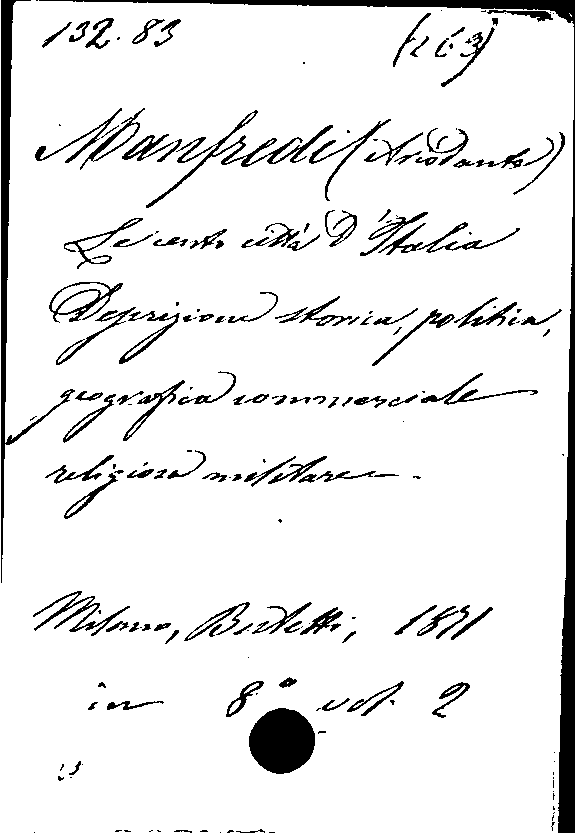 132.83 (263)
Manfredi (Ariodante)
Le cento città d'Italia
Descrizione storica, politica,
geografica commerciale
religiosa militare.
Milano, Bestetti, 1871
in 8° vol. 2